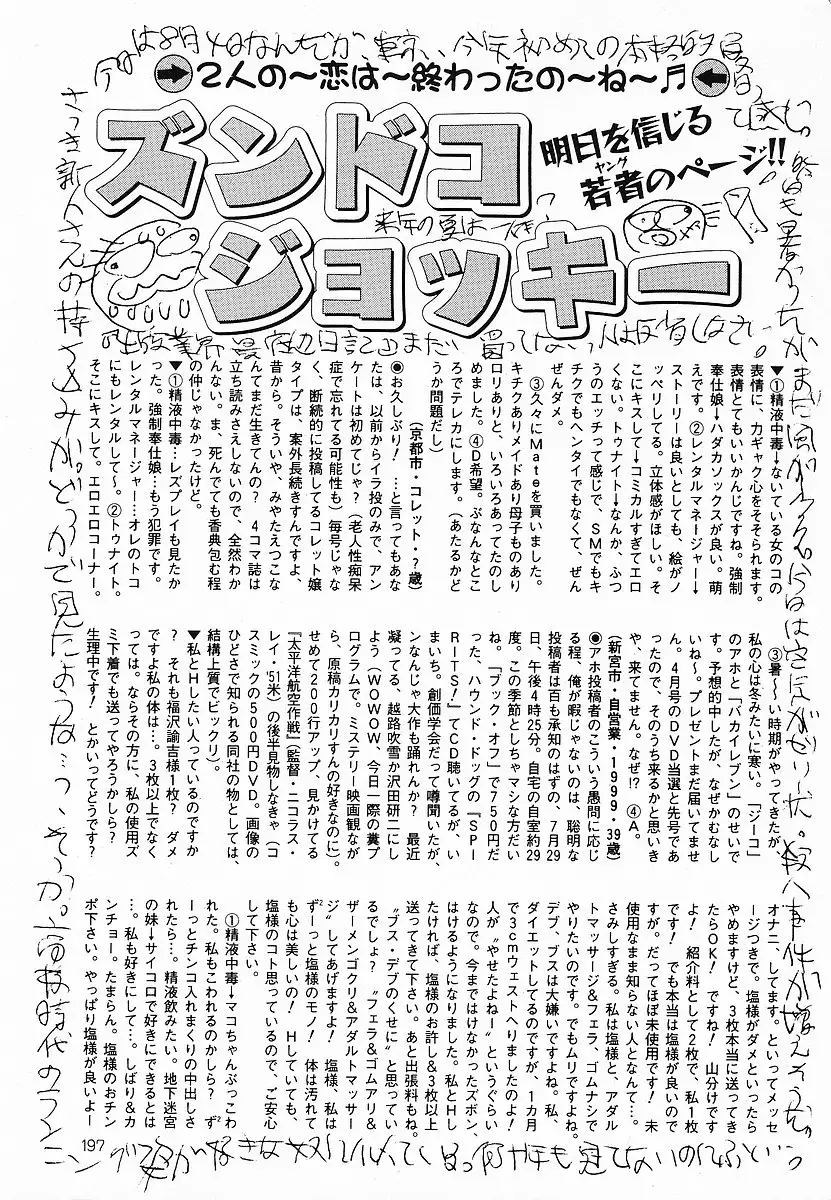 2人の〜恋は〜終わったの〜ね〜♬
ズンドコ
ジョッキー
明日を信じる
若者のページ!!
ヤング
来年の夏は
▼①精液中毒→ないている女のコの
表情に、力ギャク心をそそられます。
表情とてもいいかんじですね。強制
奉仕娘→ハダカソックスが良い。萌
えです。②レンタルマネージャー→
ストーリーは良いとしても、絵がノ
ッペリしてる。立体感がほしい。そ
こにキスして→コミカルすぎてエロ
くない。トゥナイト→なんか、ふつ
うのエッチって感じで、SMでもキ
チクでもヘンタイでもなくて、ぜん
ぜんダメ。
③久々にMateを買いました。
キチクありメイドあり母子ものあり
ロリありと、いろいろあってたのし
めました。④D希望。ぶなんなとこ
ろでテレカにします。(あたるかど
うか問題だし)
(京都市・コレット・?歳)
◉お久しぶり!…と言ってもあな
たは、以前からイラ投のみで、アン
ケートは初めてじゃ?(老人性痴呆
症で忘れてる可能性も)毎号じゃな
く、断続的に投稿してるコレット嬢
タイプは、案外長続きすんですよ、
昔から。そういや、みやたえつこな
んてまだ生きてんの? 4コマ誌は
立ち読みさえしないので、全然わか
んない。ま、死んでても香典包む程
の仲じゃなかったけど。
▼①精液中毒…レズプレイも見たか
った。強制奉仕娘…もう犯罪です。
レンタルマネージャー…オレのトコ
にもレンタルして〜。②トゥナイト。
そこにキスして。エロエロコーナー。
③暑〜い時期がやってきたが、
私の心は冬みたいに寒い。「ジーコ」
のアホと「バカイレブン」のせいで
す。予想的中したが、なぜかむなし
いね〜。プレゼントまだ届いてませ
ん。4月号のDVD当選と先号であ
ったので、そのうち来るかと思いき
や、来てません。なぜ!? ④A。
(新宮市・自営業・1999・39歳)
◉アホ投稿者のこういう愚問に応じ
る程、俺が暇じゃないのは、聡明な
投稿者は百も承知のはずの、7月29
日、午後4時25分。自宅の自室約29
度。この季節としちゃマシな方だい
ね。「ブック・オフ」で750円だ
った、ハウンド・ドッグの『SPI
RITS!』てCD聴いてるが、い
まいち。創価学会だって噂聞いたが、
ンなんじゃ大作も踊れんか? 最近
凝ってる、越路吹雪か沢田研二にし
よう(WOWOW、今日一際の糞プ
ログラムで。ミステリー映画観なが
ら、原稿カリカリすんの好きなのに)。
せめて200行アップ、見かけてる
『太平洋航空作戦』(監督・ニコラス・
レイ・'51米)の後半見物しなきゃ(コ
スミックの500円DVD。画像の
ひどさで知られる同社の物としては、
結構上質でビックリ)。
▼私とHしたい人っているのですか
? それも福沢諭吉様1枚? ダメ
ですよ私の体は…。3枚以上でなく
っては。ならその方に、私の使用ズ
ミ下着でも送ってやろうかしら?
生理中です! とかいってどうです?
オナニ、してます。といってメッセ
ージつきで。塩様がダメといったら
やめますけど、3枚本当に送ってき
たらOK! ですね! 山分けです
よ! 紹介料として2枚で、私1枚
です! でも本当は塩様が良いので
すが。だってほぼ未使用です! 未
使用なまま知らない人となんて…。
さみしすぎる。私は塩様と、アダル
トマッサージ&フェラ、ゴムナシで
やりたいのです。でもムリですよね。
デブ、ブスは大嫌いですよね。私、
ダイエットしてるのですが、1カ月
で3cmウェストへりましたのよ!
人が〝やせたよねー〟というぐらい
なので。今まではけなかったズボン、
はけるようになりました。私とHし
たければ、塩様のお許し&3枚以上
送ってきて下さい。あと出張料もね。
〝ブス・デブのくせに〟と思ってい
るでしょ? 〝フェラ&ゴムアリ&
ザーメンゴクリ&アダルトマッサー
ジ〟してあげますよ! 塩様、私は
ずーっと塩様のモノ! 体は汚れて
も心は美しいの! Hしていても、
塩様のコト思っているので、ご安心
して下さい。
①精液中毒→マコちゃんぶっこわ
れた。私もこわれるのかしら? ず
ーっとチンコ入れまくりの中出しさ
れたら…。精液飲みたい。地下迷宮
の妹→サイコロで好きにできるとは
…。私も好きにして…。しばり&カ
ンチョー。たまらん。塩様のおチン
ポ下さい。やっぱり塩様が良いよー
さっき新人さんの持ち込みが。どっかで見たような…っ、そうか。
197